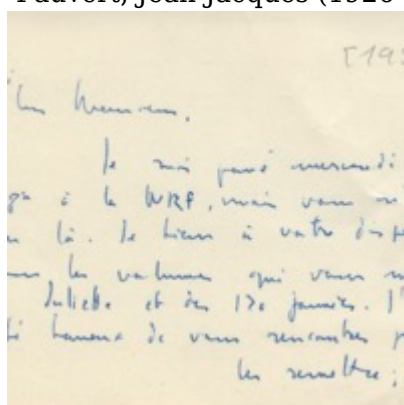 Pauvert, Jean-Jacques (1926
[195
Monsieur,
Je suis passé mercredi
à la NRF, mais vous n'
là. Je tiens à votre disp
les volumes qui vous m
Juliette et des 120 journées. J'
heureux de vous rencontrer p
les remettre ;